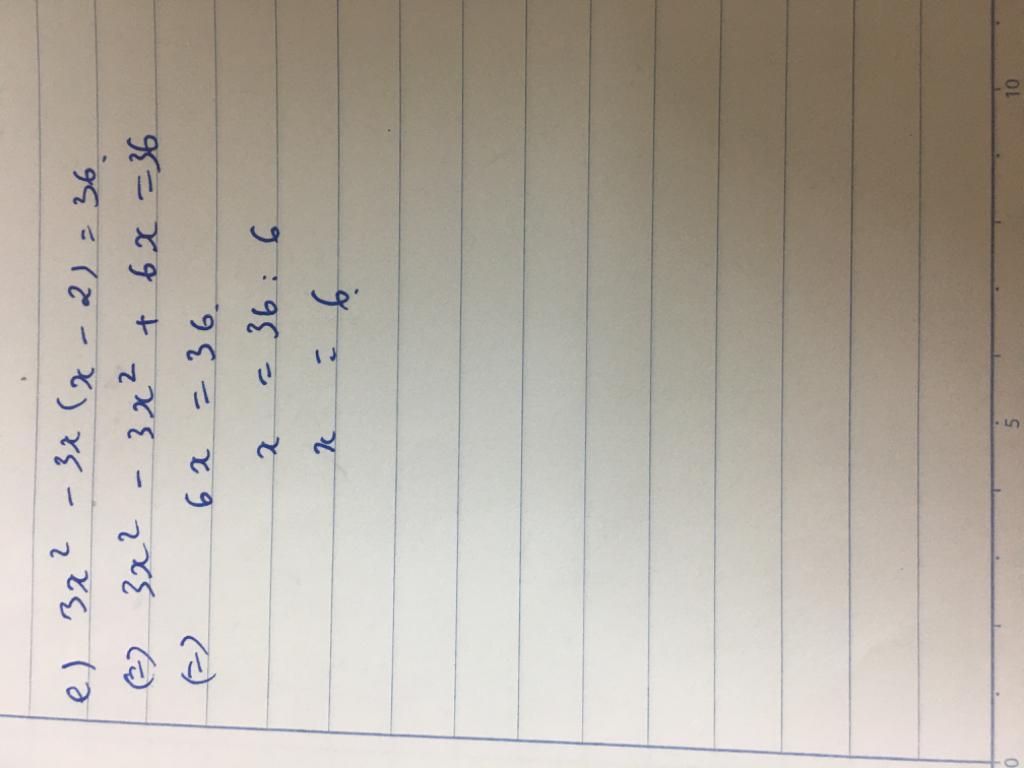 e) 3x² - 3x(x - 2) = 36.
(=) 3x² - 3x² + 6x = 36
(=) 6x = 36.
x = 36 : 6
x = 6.
0 5 10